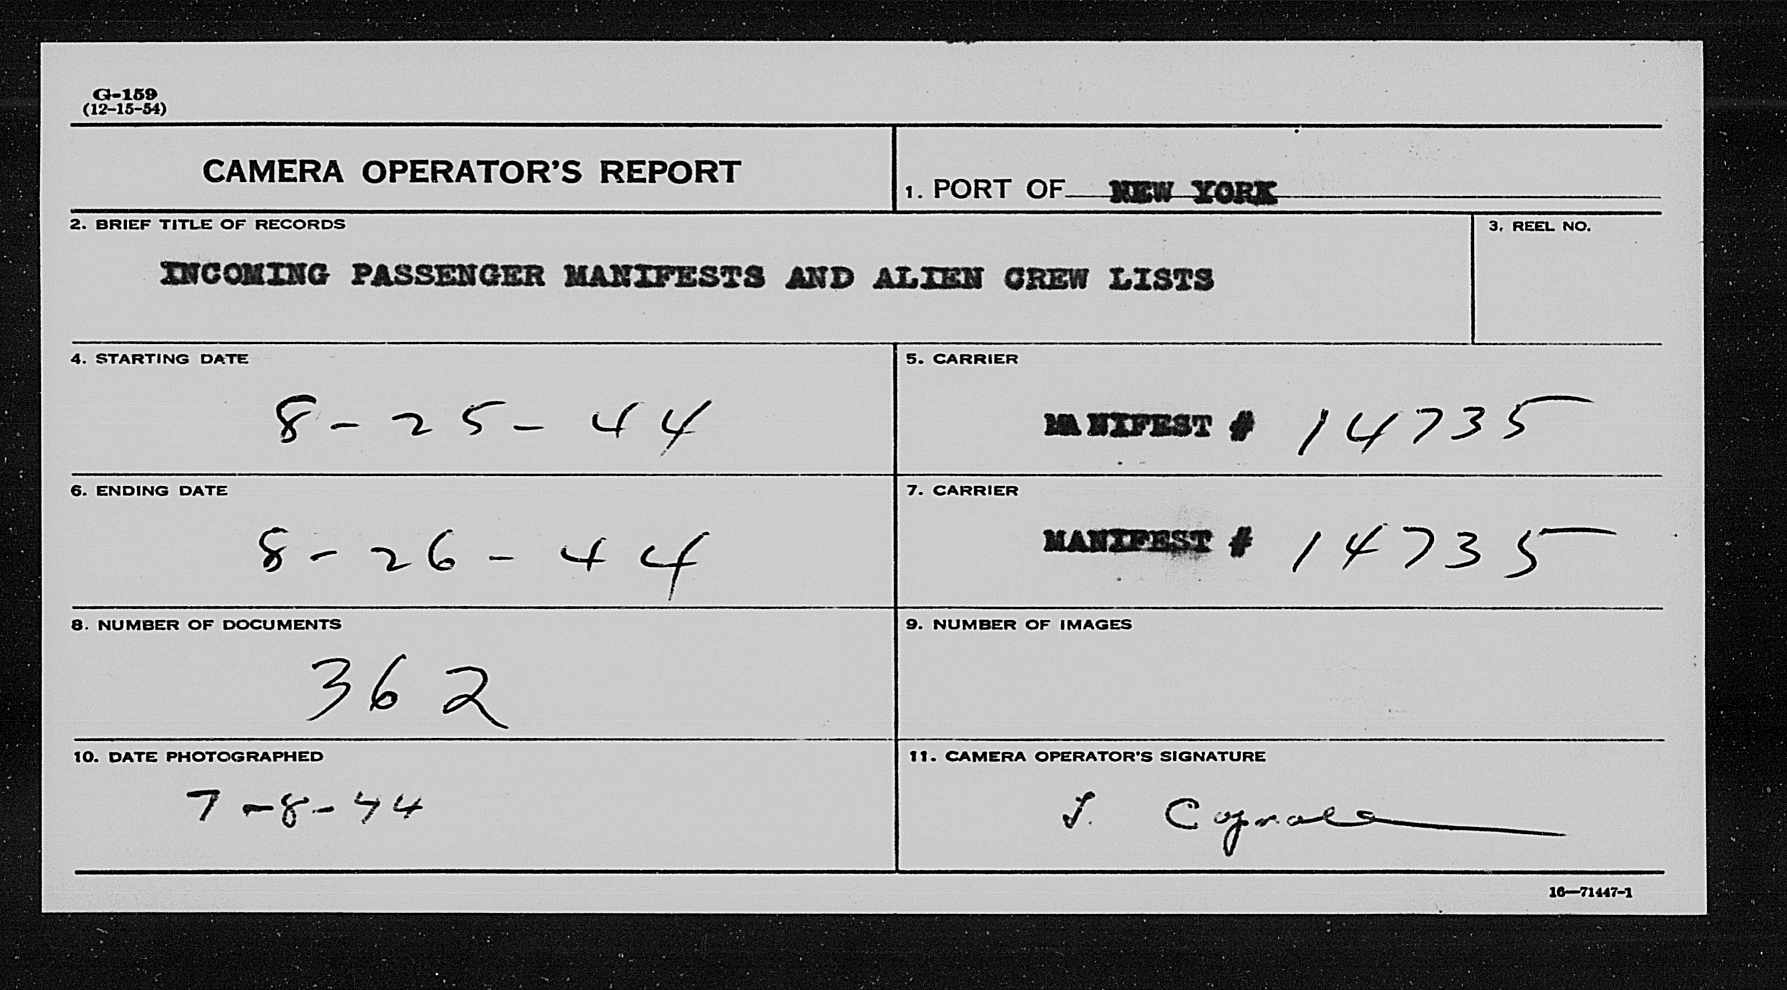 G-159
(12-15-54)
CAMERA OPERATOR'S REPORT
1. PORT OF NEW YORK
2. BRIEF TITLE OF RECORDS
3. REEL NO.
INCOMING PASSENGER MANIFESTS AND ALIEN CREW LISTS
4. STARTING DATE
5. CARRIER
8-25-44
MANIFEST # 14735
6. ENDING DATE
7. CARRIER
8-26-44
MANIFEST # 14735
8. NUMBER OF DOCUMENTS
9. NUMBER OF IMAGES
362
10. DATE PHOTOGRAPHED
11. CAMERA OPERATOR'S SIGNATURE
7-8-44
16—71447-1